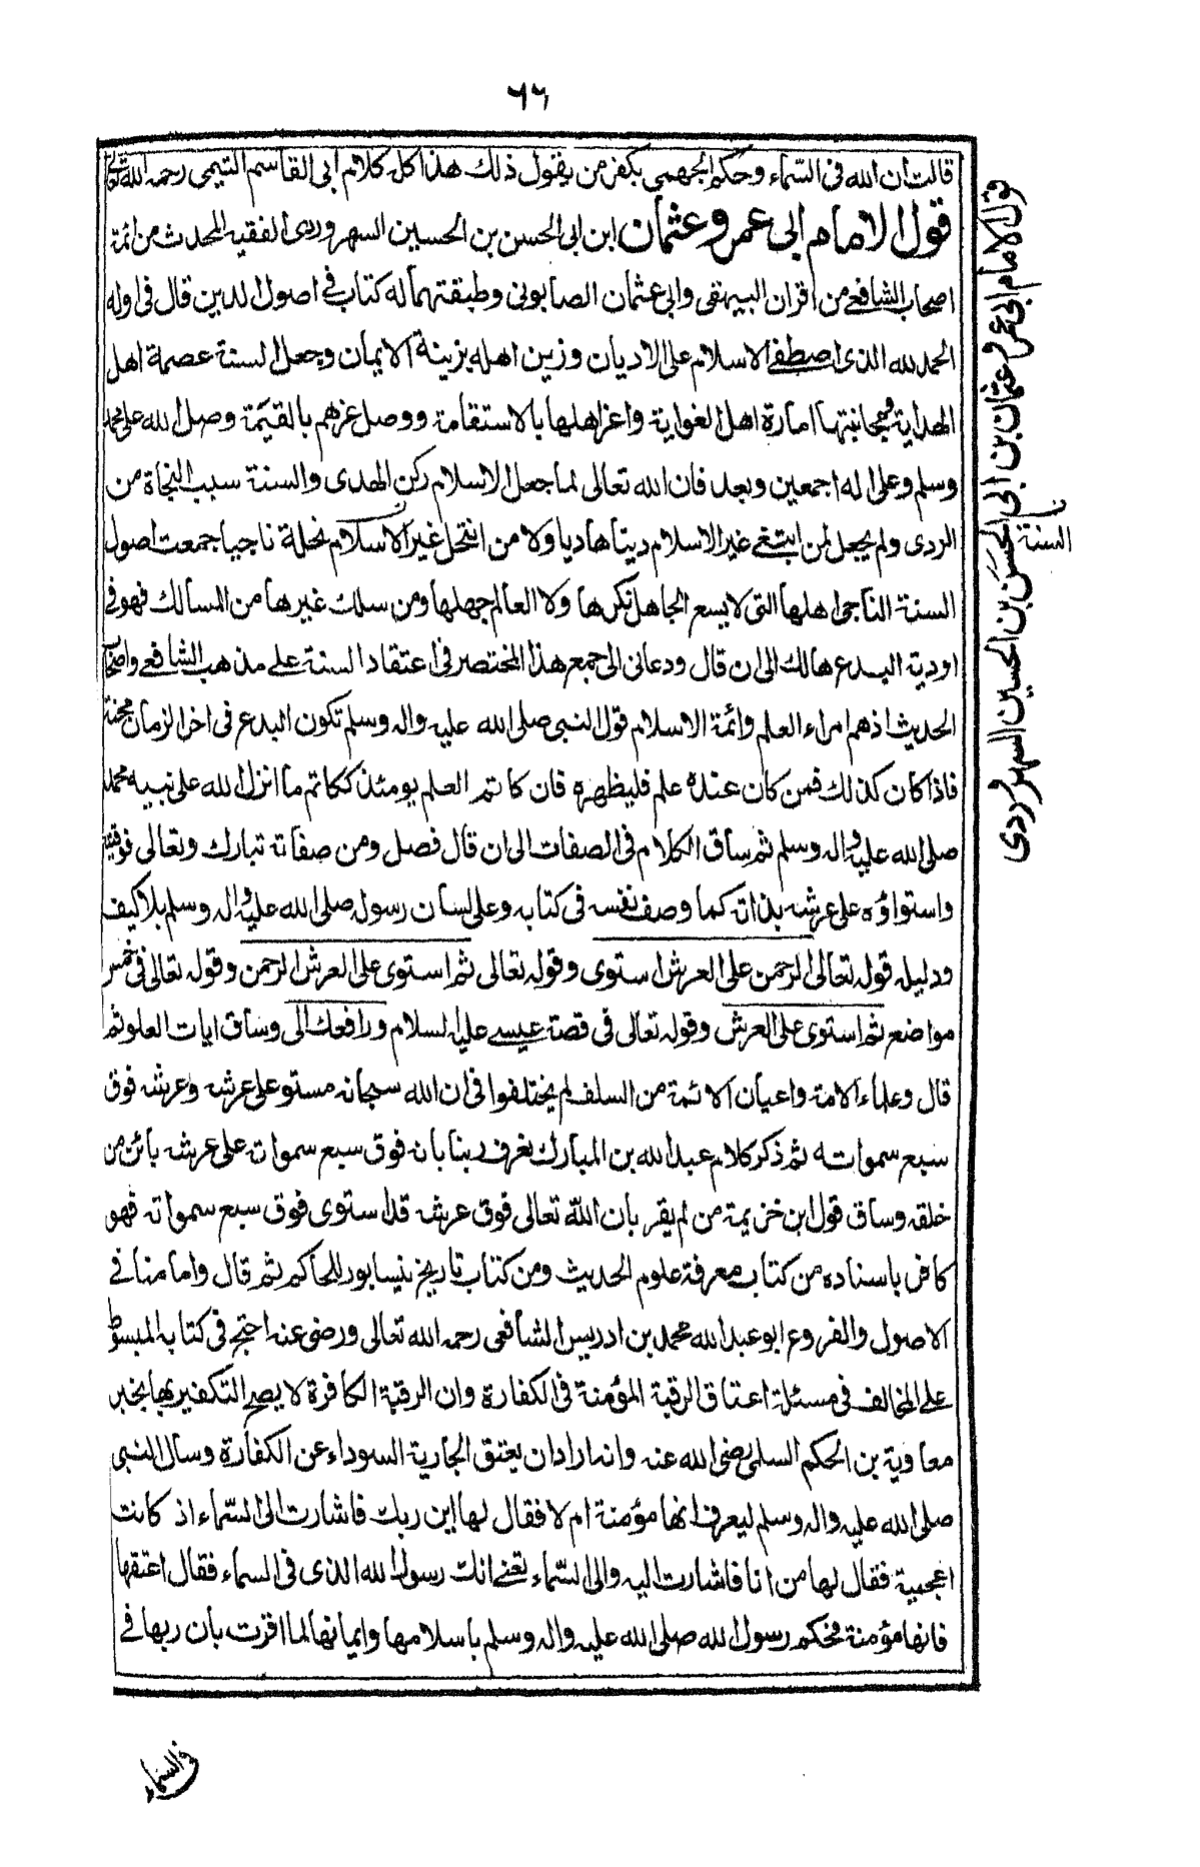 ٦٦
قالت ان الله فى السّماء وحكم الجهمى بكفر من يقول ذلك هذا كله كلام ابى القاسم التيمى رحمه الله تعالى
قول الامام ابى عمرو عثمان ابن ابى الحسن بن الحسين السهروردى الفقيه المحدث من ائمة
اصحاب الشافعے من اقران البيهقى وابى عثمان الصابونى وطبقتهما له كتاب فے اصول الدين قال فى اوله
الحمد لله الذى اصطفے الاسلام على الاديان وزين اهله بزينة الايمان وجعل السنة عصمة اهل
الهداية ومجانبتها امارة اهل الغواية واعز اهلها بالاستقامة ووصل عزهم بالقيٰمة وصل الله على محمد
وسلم وعلى اله اجمعين وبعد فان الله تعالى لما جعل الاسلام ركن الهدى والسنة سبب النجاة من
الردى ولم يجعل لمن ابتغے غير الاسلام دينا هاديا ولا من انتحل غير الاسلام نحلة ناجيا جمعت اصول
السنة الناجى اهلها التى لا يسع الجاهل نكرها ولا العالم جهلها ومن سلك غيرها من المسالك فهو فے
اودية البدع هالك الى ان قال ودعانى الى جمع هذا المختصر فى اعتقاد السنة علے مذهب الشافعے واصحاب
الحديث اذ هم امراء العلم وائمة الاسلام قول النبى صلى الله عليه واله وسلم تكون البدع فى اخر الزمان محنة
فاذا كان كذلك فمن كان عنده علم فليظهره فان كاتم العلم يومئذ ككاتم ما انزل الله على نبيه محمد
صلى الله عليه واله وسلم ثم ساق الكلام فى الصفات الى ان قال فصل ومن صفاته تبارك وتعالى فوقيته
واستواؤه على عرشه بذاته كما وصف نفسه فى كتابه وعلى لسان رسوله صلى الله عليه واله وسلم بلا كيف
ودليله قوله تعالى الرحمن على العرش استوى وقوله تعالى ثم استوى على العرش الرحمن وقوله تعالى فى خمس
مواضع ثم استوى على العرش وقوله تعالى فى قصة عيسے عليه السلام ورافعك الى وساق ايات العلو ثم
قال وعلماء الامة واعيان الائمة من السلف لم يختلفوا فى ان الله سبحانه مستو على عرشه وعرشه فوق
سبع سمواته ثم ذكر كلام عبد الله بن المبارك نعرف ربنا بانه فوق سبع سمواته على عرشه بائن من
خلقه وساق قول ابن خزيمة من لم يقر بان الله تعالى فوق عرشه قد استوى فوق سبع سمواته فهو
كافر باسناده من كتاب معرفة علوم الحديث ومن كتاب تاريخ نيسابور للحاكم ثم قال وامامنا فے
الاصول والفروع ابو عبد الله محمد بن ادريس الشافعى رحمه الله تعالى ورضى عنه احتج فى كتابه المبسوط
على المخالف فى مسئلة اعتاق الرقبة المؤمنة فى الكفارة وان الرقبة الكافرة لا يصح التكفير بها بخبر
معاوية بن الحكم السلمى رضى الله عنه وانه اراد ان يعتق الجارية السوداء عن الكفارة وسأل النبى
صلى الله عليه واله وسلم ليعرف انها مؤمنة ام لا فقال لها اين ربك فاشارت الى السّماء اذ كانت
اعجمية فقال لها من انا فاشارت اليه والى السّماء تعنے انك رسول الله الذى فى السماء فقال اعتقها
فانها مؤمنة فحكم رسول الله صلى الله عليه واله وسلم باسلامها وايمانها لما اقرت بان ربها فے
فى السّماء
قول الامام ابى عمرو عثمان بن ابى الحسن بن الحسين السهروردى
السنة